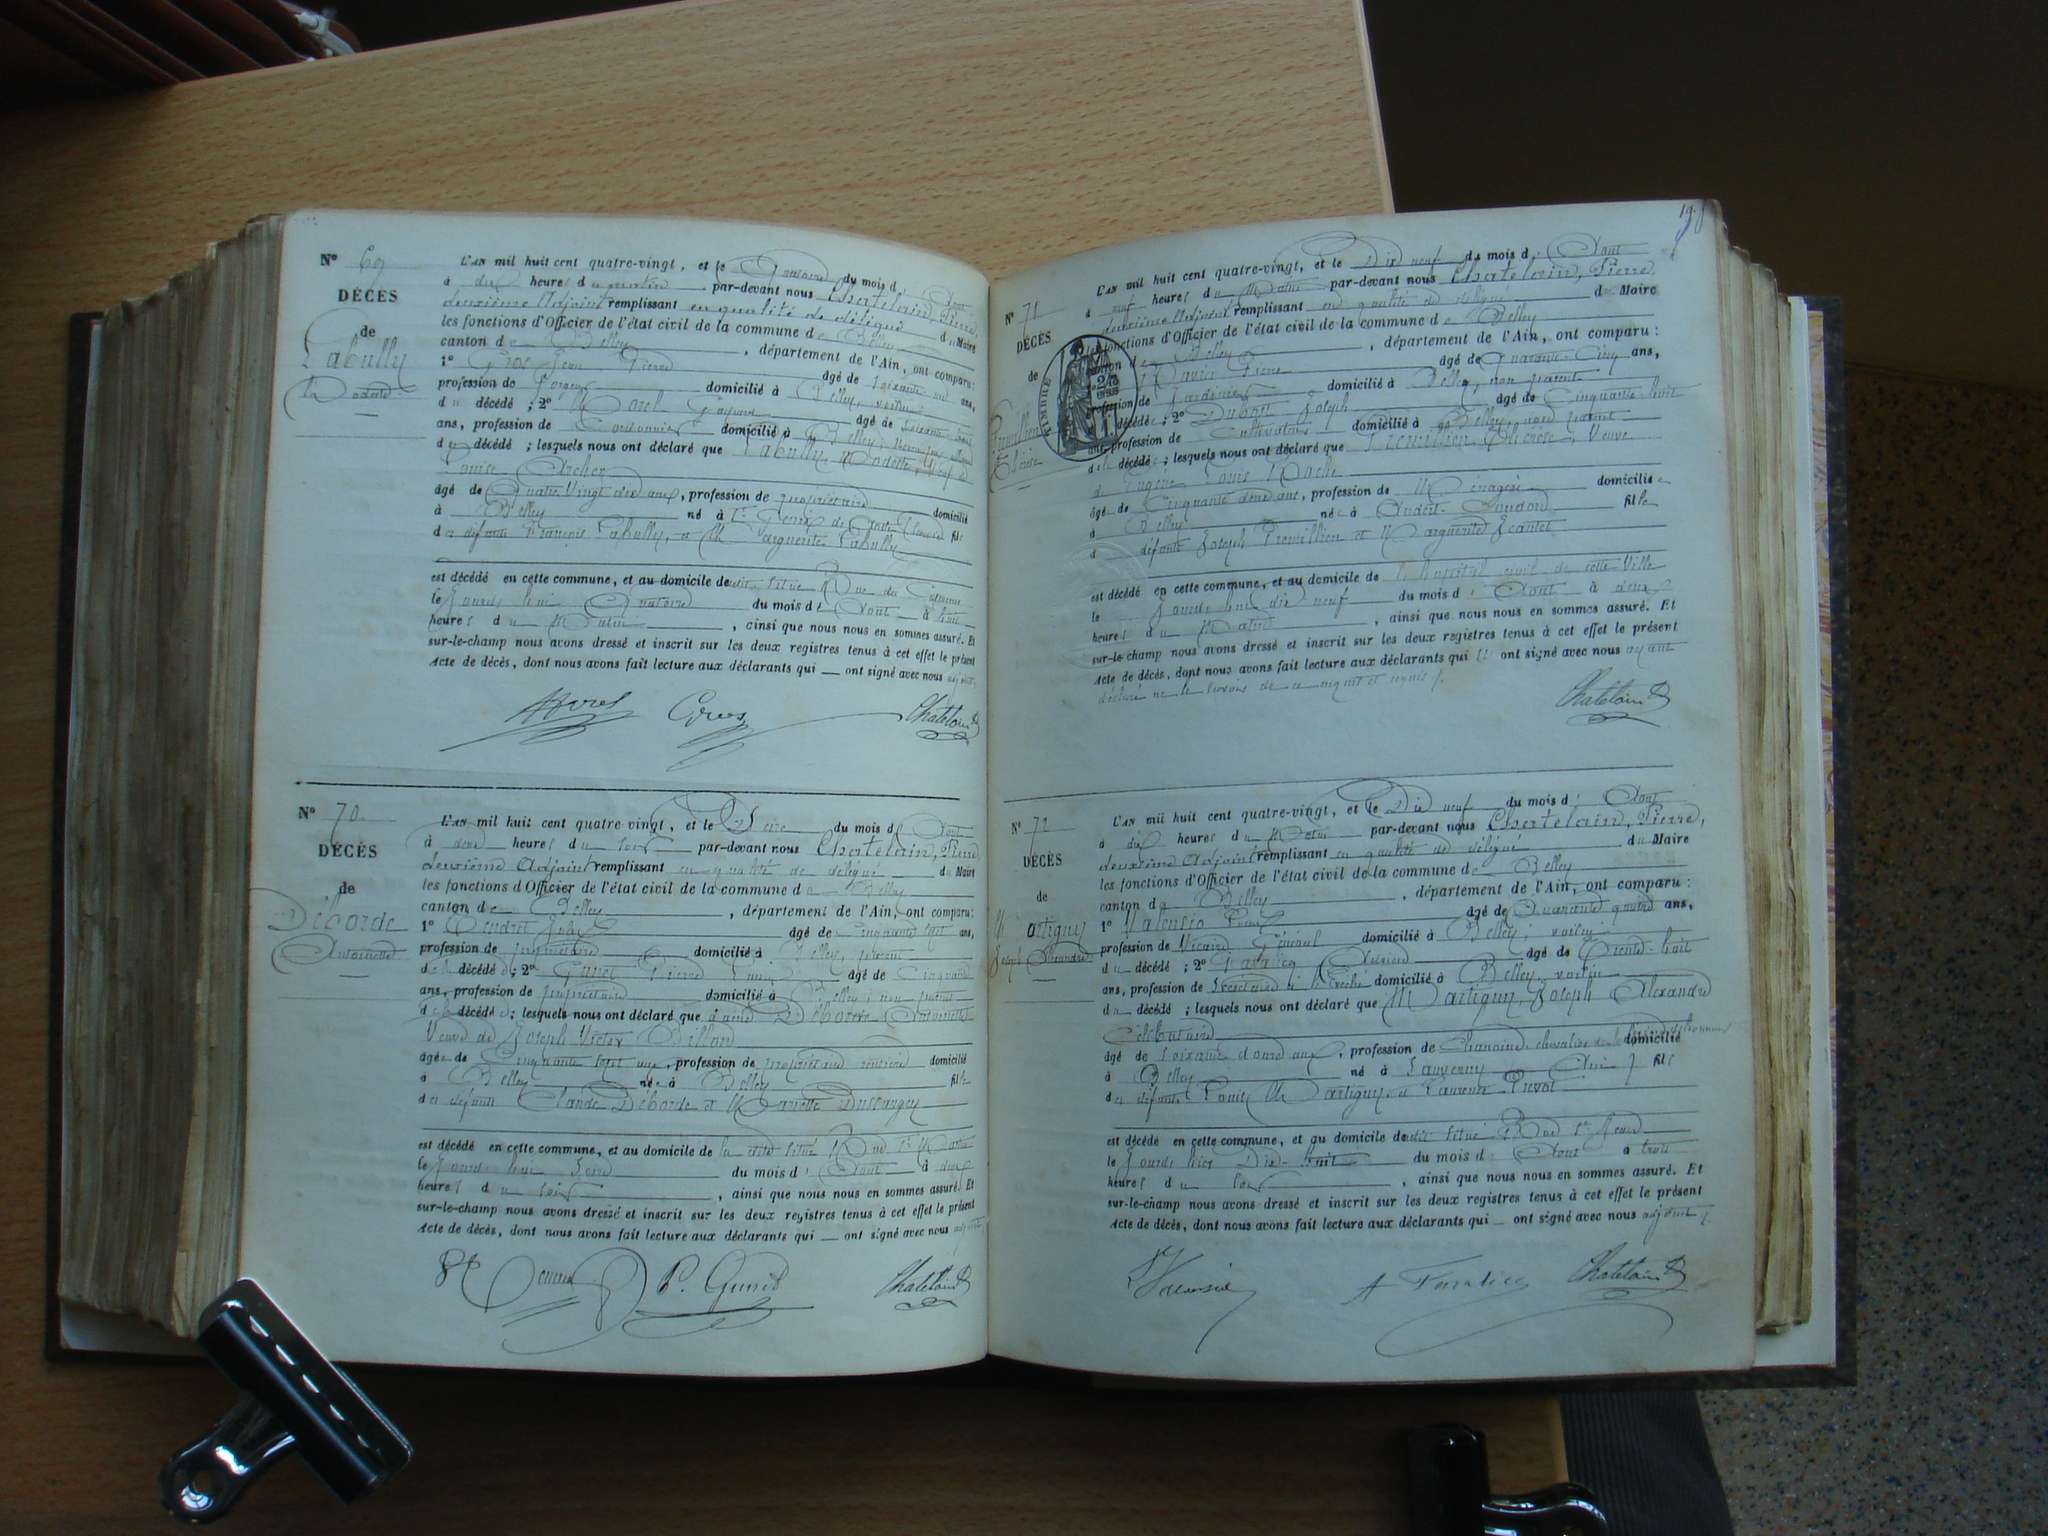 N° 69
DÉCÈS
de
Labully
Modeste
L'AN mil huit cent quatre-vingt, et le Quatorze du mois d' Août
à dix heures du matin par-devant nous Chatelain, Pierre,
deuxième Adjoint remplissant en qualité de délégué du Maire
les fonctions d'Officier de l'état civil de la commune de Belley
canton de Belley, département de l'Ain, ont comparu :
1° Gros Jean Pierre âgé de soixante ans,
profession de domicilié à Belley, voisin
du décédé ; 2° Morel âgé de soixante
ans, profession de Cordonnier domicilié à Belley,
du décédé ; lesquels nous ont déclaré que Labully Modeste, veuf de
Louise Archer
âgé de Quatre vingt deux ans, profession de propriétaire domicilié
à Belley né à St Genix de fils
des défunts François Labully, et Marguerite Labully
est décédé en cette commune, et au domicile de situé Rue du
le Jourd'hui Quatorze du mois d' Août à huit
heures du Matin, ainsi que nous nous en sommes assuré. Et
sur-le-champ nous avons dressé et inscrit sur les deux registres tenus à cet effet le présent
Acte de décès, dont nous avons fait lecture aux déclarants qui — ont signé avec nous adjoint
Morel Gros Chatelain
N° 70
DÉCÈS
de
Déborde
Antoinette
L'AN mil huit cent quatre-vingt, et le Seize du mois d' Août
à deux heures du soir par-devant nous Chatelain, Pierre,
deuxième Adjoint remplissant en qualité de délégué du Maire
les fonctions d'Officier de l'état civil de la commune de Belley
canton de Belley, département de l'Ain, ont comparu :
1° âgé de Cinquante sept ans,
profession de propriétaire domicilié à Belley,
de la décédée ; 2° Pierre âgé de Cinquante
ans, profession de propriétaire domicilié à Belley, non parent
de la décédée ; lesquels nous ont déclaré que Déborde Antoinette
Veuve de Joseph Victor Billon
âgée de Cinquante sept ans, profession de propriétaire rentière domicilié
à Belley née à Belley fille
des défunts Claude Déborde et Mariette Dussargey
est décédé en cette commune, et au domicile de la dite situé Rue St Martin
le Jourd'hui Seize du mois d' Août à deux
heures du soir, ainsi que nous nous en sommes assuré. Et
sur-le-champ nous avons dressé et inscrit sur les deux registres tenus à cet effet le présent
Acte de décès, dont nous avons fait lecture aux déclarants qui — ont signé avec nous adjoint
P. Chatelain
19
N° 71
DÉCÈS
de
TIMBRE
L'AN mil huit cent quatre-vingt, et le Dix neuf du mois d' Août
à neuf heures du Matin par-devant nous Chatelain, Pierre,
deuxième Adjoint remplissant en qualité de délégué du Maire
les fonctions d'Officier de l'état civil de la commune de Belley
canton de Belley, département de l'Ain, ont comparu :
1° Pierre âgé de Quarante-Cinq ans,
profession de Jardinier domicilié à Belley, non parent
de la décédée ; 2° Joseph âgé de Cinquante huit
ans, profession de Cultivateur domicilié à Belley, non parent
de la décédée ; lesquels nous ont déclaré que Veuve
d' Eugène Louis
âgée de Cinquante deux ans, profession de Ménagère domiciliée
à Belley née à Andert-Condon fille
d défunts Joseph et Marguerite
est décédé en cette commune, et au domicile de l'hôpital civil de cette Ville
le Jourd'hui dix neuf du mois d' Août à deux
heures du Matin, ainsi que nous nous en sommes assuré. Et
sur-le-champ nous avons dressé et inscrit sur les deux registres tenus à cet effet le présent
Acte de décès, dont nous avons fait lecture aux déclarants qui ont signé avec nous ayant
déclaré ne le savoir de ce enquis et requis
Chatelain
N° 72
DÉCÈS
de
Martigny
Joseph Alexandre
L'AN mil huit cent quatre-vingt, et le Dix neuf du mois d' Août
à dix heures du Matin par-devant nous Chatelain, Pierre,
deuxième Adjoint remplissant en qualité de délégué du Maire
les fonctions d'Officier de l'état civil de la commune de Belley
canton de Belley, département de l'Ain, ont comparu :
1° âgé de Quarante quatre ans,
profession de Vicaire Général domicilié à Belley, voisin
du décédé ; 2° âgé de Trente-huit
ans, profession de Secrétaire à l'Evêché domicilié à Belley, voisin
du décédé ; lesquels nous ont déclaré que Martigny, Joseph Alexandre
Célibataire
âgé de soixante douze ans, profession de Chanoine, chevalier de la domicilié
à Belley né à Sauverny (Ain) fils
des défunts Louis Martigny, et Laurence Prevot
est décédé en cette commune, et au domicile dudit situé Rue St Jean
le Jourd'hier Dix-huit du mois d' Août à trois
heures du soir, ainsi que nous nous en sommes assuré. Et
sur-le-champ nous avons dressé et inscrit sur les deux registres tenus à cet effet le présent
Acte de décès, dont nous avons fait lecture aux déclarants qui — ont signé avec nous adjoint
Chatelain